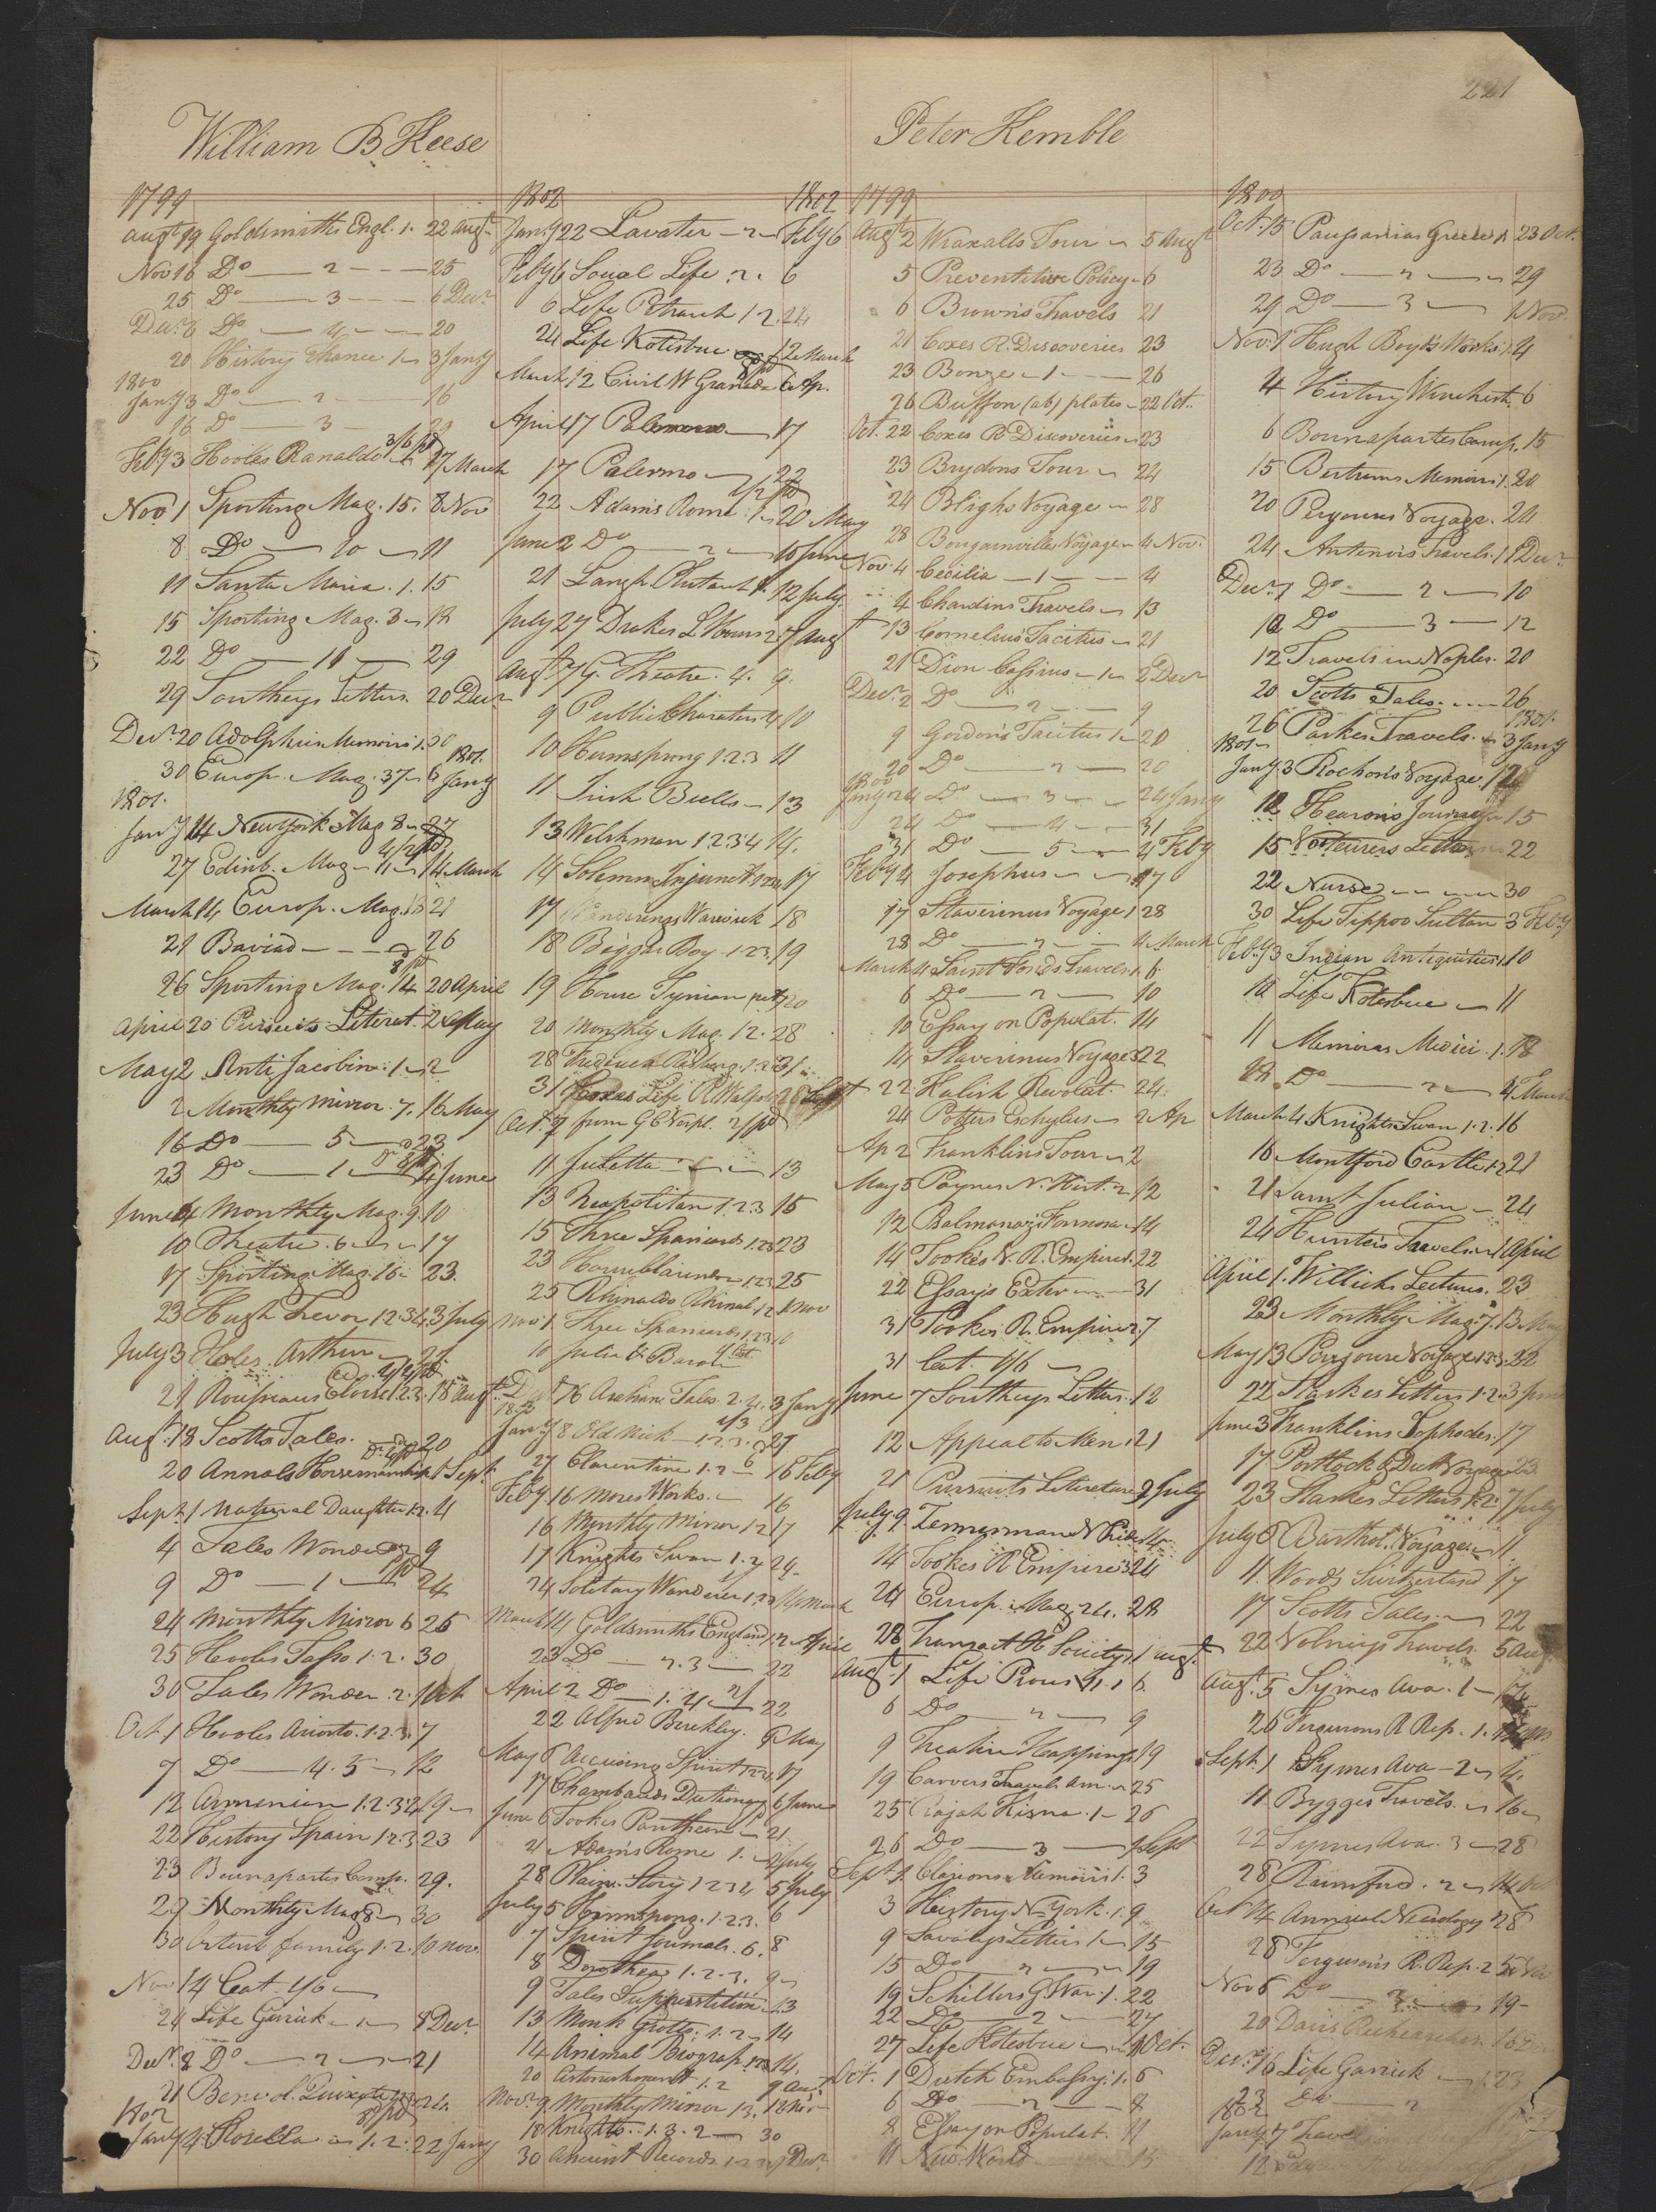 221
William B Keese
1799
Augt 19 Goldsmiths Engl. 1. 22 Augt
Nov 16 Do 2 25
25 Do 3 6 Decr
Decr 6 Do 4 20
20 History France 1 3 Jany
1800
Jany 3 Do 2 16
16 Do 3 29
Feby 3 Hooles Ranaldo 3/6 pd 17 March
Nov 1 Sporting Mag. 15. 8 Nov
8 Do 10 11
11 Santa Maria. 1. 15
15 Sporting Mag. 3 18
22 Do 11 29
29 Southeys Letters. 20 Decr
Decr 20 Adolphus Memoirs 1. 30
1801.
30 Europ. Mag. 37 6 Jany
1801.
Jany 14 New York Mag 8 27
27 Edinb. Mag 11 4/2 pd 14 March
March 14 Europ. Mag. 13 21
21 Baviad 26
26 Sporting Mag. 14 8/pd 20 April
April 20 Pursuits Literat. 2 May
May 2 Anti Jacobin 1 2
2 Monthly Mirror. 7. 16 May
16 Do 5 23
23 Do 1 4 June
June 4 Monthly Mag. 9. 10
10 Theatre. 6 17
17 Sporting Mag. 16 23.
23 Hugh Trevor 1.2.3.4. 3 July
July 3 Holes Arthur 21
21 Rousseaus Eloise 1.2.3. 18 Augt.
Augt. 18 Scotts Tales. 20
20 Annals Horsemanship 1 Sept.
Sept. 1 Natural Daughter 1.2. 4
4 Tales Wonder 2 9
9 Do 1 24
24 Monthly Mirror 6 25
25 Hooles Tasso 1.2. 30
30 Tales Wonder. 2. 1 Oct
Oct. 1 Hooles Ariosto. 1.2.3. 7
7 Do 4.5 12
12 Armenian 1.2.3.4 19
22 History Spain 1.2.3 23
23 Buonapartes Camp. 29.
29 Monthly Mag 8 30
30 family 1.2. 10 Nov.
Nov 14 Cat. 1/6
24 Life Garrick 1 8 Decr.
Decr. 8 Do 2 21
21 Benevol. Quixote 24.
1802
Jany 4 Rosella 1.2. 22 Jany
1802
1802
Jany 22 Lavater 2 Feby 6
Feby 6 Social Life 2. 6
6 Life Petrarch 1 2. 24
24 Life Kotzebue 12 March
March 12 Civil W Granada 6 Ap.
April 17 Palermo 17
17 Palermo 22
22 Adams Rome 1 20 May
June 2 Do 2 10 June
21 Langh. Plutarch 1. 12 July
July 27 Drakes L Hours 2. 7 Augt
Augt 7 G. Theatre. 4. 9.
9 Public Characters 4 10
10 Hermsprong 1.2.3 11
11 Irish Bulls 13
13 Welshman 1.2.3.4 14.
14 Solemn Injunct. 17
17 Wanderings Warwick 18
18 Beggar Boy 1.2.3. 19
19 House Tynian 20
20 Monthly Mag. 12. 28
31 Coxes Life R Walpole 28 Sept
Oct. 7 from G C Verpl. 2/pd
11 Juletta 13
13 Neapolitan 1.2.3 15
15 Three Spaniards 1.2.3 23
23 1.2.3 25
25 Rhinaldo Rhinal. 1.2 1 Nov
Nov 1 Three Spaniards 1.2.3. 10
10 Julia de
16 Arabian Tales. 2.4. 3 Jany
Jany 8 Old Nick 1.2.3. 27
27 Clarentine 1.2 16 Feby
Feby 16 Mores Works. 16
16 Monthly Mirror 12 17
17 Knights Swan 1.2 24
24 Solitary Wanderer 14 March
March 14 Goldsmiths England 1.2 April
23 Do 2.3 22
April 2 Do 1.4 22
22 Alfred Berkley. 6 May
May 6 Accusing Spirit 17
17 Chambauds Dictionary 6 June
June 6 Tookes Pantheon 21
21 Adam's Rome 1. 2 July
28 Plain Story 1 2 3 4 5 July
July 5 Hermsprong. 1.2.3. 6
7 Spirit Journals. 6. 8
8 Dorothea 1.2.3. 9
9 Tales Supperstition 13
13 Monk Grotto. 1.2 14
14 Animal Biograph. 14.
20 1.2 9 Augt
Novr 9 Monthly Mirror 13. 18 Nov
18 Knights. 1.3.2 30
30 Ancient Records. Decr.
Peter Kemble
1799
Augt 2 Wraxalls Tour 5 Augt
5 Preventitive Policy 6
6 Browns Travels 21
21 Coxes R. Discoveries 23
23 Bonze 1 26
26 Buffon (ab) plates 22 Oct.
Oct. 22 Coxes R Discoveries 23
23 Brydons Tour 24
24 Blighs Voyage 28
28 Bougainvilles Voyage 4 Nov.
Nov. 4 Cecilia 1 4
4 Chardins Travels 13
13 Cornelius Tacitus 21
21 Dion Cassius 1 2 Decr
Decr 2 Do 2 9
9 Gordon's Tacitus 1 20
20 Do 2 20
1800
Jany 24 Do 3 24 Jany
24 Do 4 31
31 Do 5 4 Feby
Feby 4 Josephus 17
17 Staverinus Voyage 1 28
28 Do 2 4 March
March 4 Saint Fonds Travels 1. 6
6 Do 2 10
10 Essay on Populat. 14
14 Staverinus Voyage 3 22
22 Helvet. Revolut. 24.
24 Potters Eschylus 2 Ap
Ap 2 Franklins Tour 2
May 5 Paynes N. Hist. 2 12
12 Balmanazi Formosa 14
14 Tooke's V. R. Empire 1. 22
22 Essays Exeter 31
31 Tookes R. Empire 2. 7
31 Cat. 1/6
June 7 Southeys Letters. 12
12 Appeal to Men 21
21 Pursuits Literature 9 July
July 9 Zimmerman N Pride 14
14 Tookes R Empire 3 24
24 Europ. Mag 24. 28
28 Transact H Society 1 1 Augt.
Augt. 1 Life Pious VI. 1 6
6 Do 2 9
9 Theatine Wappings 19
19 Carvers Travels Am. 25
25 Rajah Kisna. 1 26
26 Do 3 1 Sept
Sept 1 Clairons Memoirs 1. 3
3 History N. York. 1. 9
9 Savarys Letters 1 15
15 Do 2 19
19 Schillers G War. 1. 22
22 Do 2 27
27 Life Kotzebue 1 Oct.
Oct. 1 Dutch Embassy. 1. 6
6 Do 2 8
8 Essay on Populat. 11
11 New World 15
1800
Oct. 15 Pausanias Greece 1 23 Oct.
23 Do 2 29
29 Do 3 1 Nov.
Nov. 1 Hugh Boyd's Works 1. 4
4 History Winchest. 6
6 Bounapartes Camp. 15
15 Bertrams Memoirs 1. 20
20 Peyrouses Voyage. 24
24 Antenors Travels. 1 1 Decr
Decr. 1 Do 2 10
10 Do 3 12
12 Travels in Naples. 20
20 Scotts Tales. 26
1801.
26 Parkes Travels. 3 Jany
1801
Jany 3 Rochons Voyage. 12
12 Hearons Journey 15
15 Letters 22
22 Nurse 30
30 Life Tippoo Sultan 3 Feby
Feby 3 Indian Antiquities 1. 10
10 Life Kotzebue 11
11 Memoirs Medici. 1. 18
18 Do 2 4 March
March 4 Knights Swan 1.2. 16
16 Montford Castle 1.2 21
21 Saint Julian 24
24 Hunters Travels 1 April
April 1. Willichs Lectures. 23
23 Monthly Mag. 7. 13 May
May 13 Peyrouse Voyage 1.2.3. 22
22 Starkes Letters 1.2. 3 June
June 3 Franklins Sophocles. 17
17 Portlock & Dix Voyage 23
23 Starkes Letters 1.2. 7 July
July 8 Barthol. Voyage 11
11 Woods Switzerland 17
17 Scotts Tales. 22
22 Volneys Travels. 5 Aug
Augt. 5 Symes Ava. 1
26 Fergusons R Rep. 1.
Sept. 1 Symes Ava 2
11 Bygges Travels. 16
22 Symes Ava. 3 28
28 Rumford. 2 14 Oct
Oct 14 Annual Necrology 28
28 Fergusons R. Rep. 2
Nov 6 Do 3 19
20 Davis Recherches.
Decr. 16 Life Garrick 1. 23
23 Do 2
1802
Jany 7
12